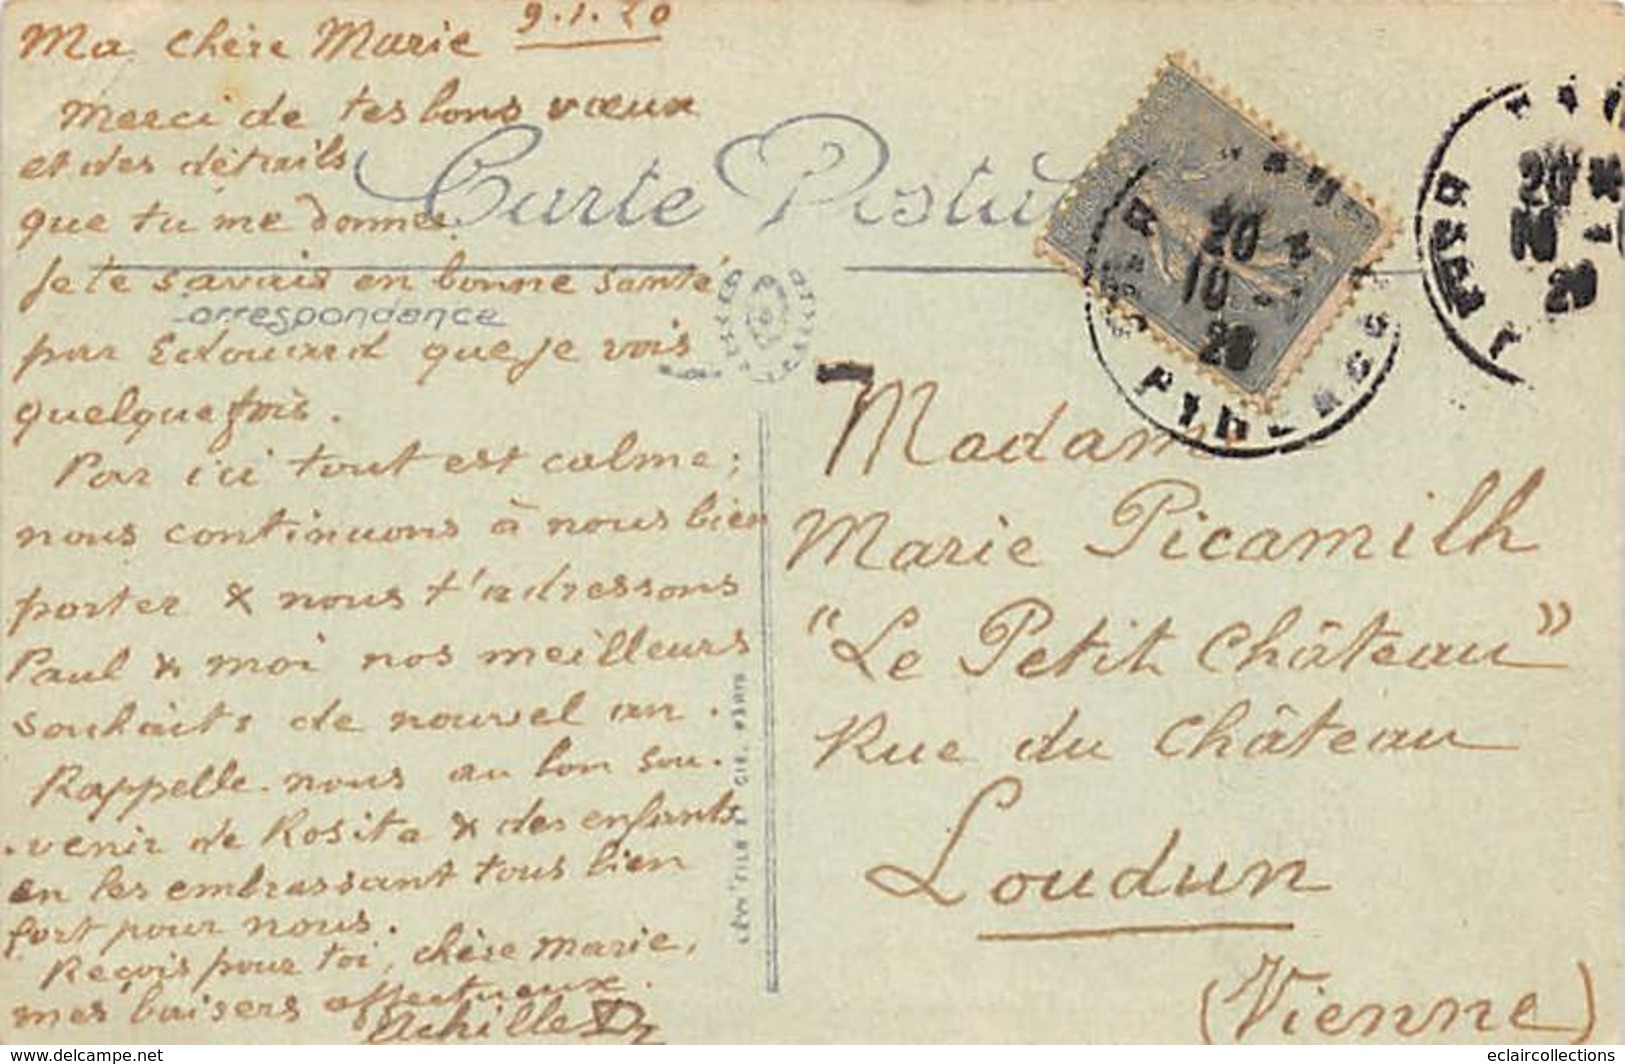 9.1.20
Ma chère Marie
Merci de tes bons vœux
et des détails
que tu me donnes.
Je te savais en bonne santé
par Edouard que je vois
quelquefois.
Par ici tout est calme ;
nous continuons à nous bien
porter & nous t'adressons
Paul & moi nos meilleurs
souhaits de nouvel an.
Rappelle-nous au bon sou-
-venir de Rosita & des enfants
en les embrassant tous bien
fort pour nous.
Reçois pour toi, chère Marie,
mes baisers affectueux.
Achille
Carte Postale
Correspondance
LÉVY FILS ET CIE. PARIS
20
10
20
20
10
20
Madame
Marie Picamilh
"Le Petit Château"
Rue du Château
Loudun
(Vienne)
www.delcampe.net
eclaircollections